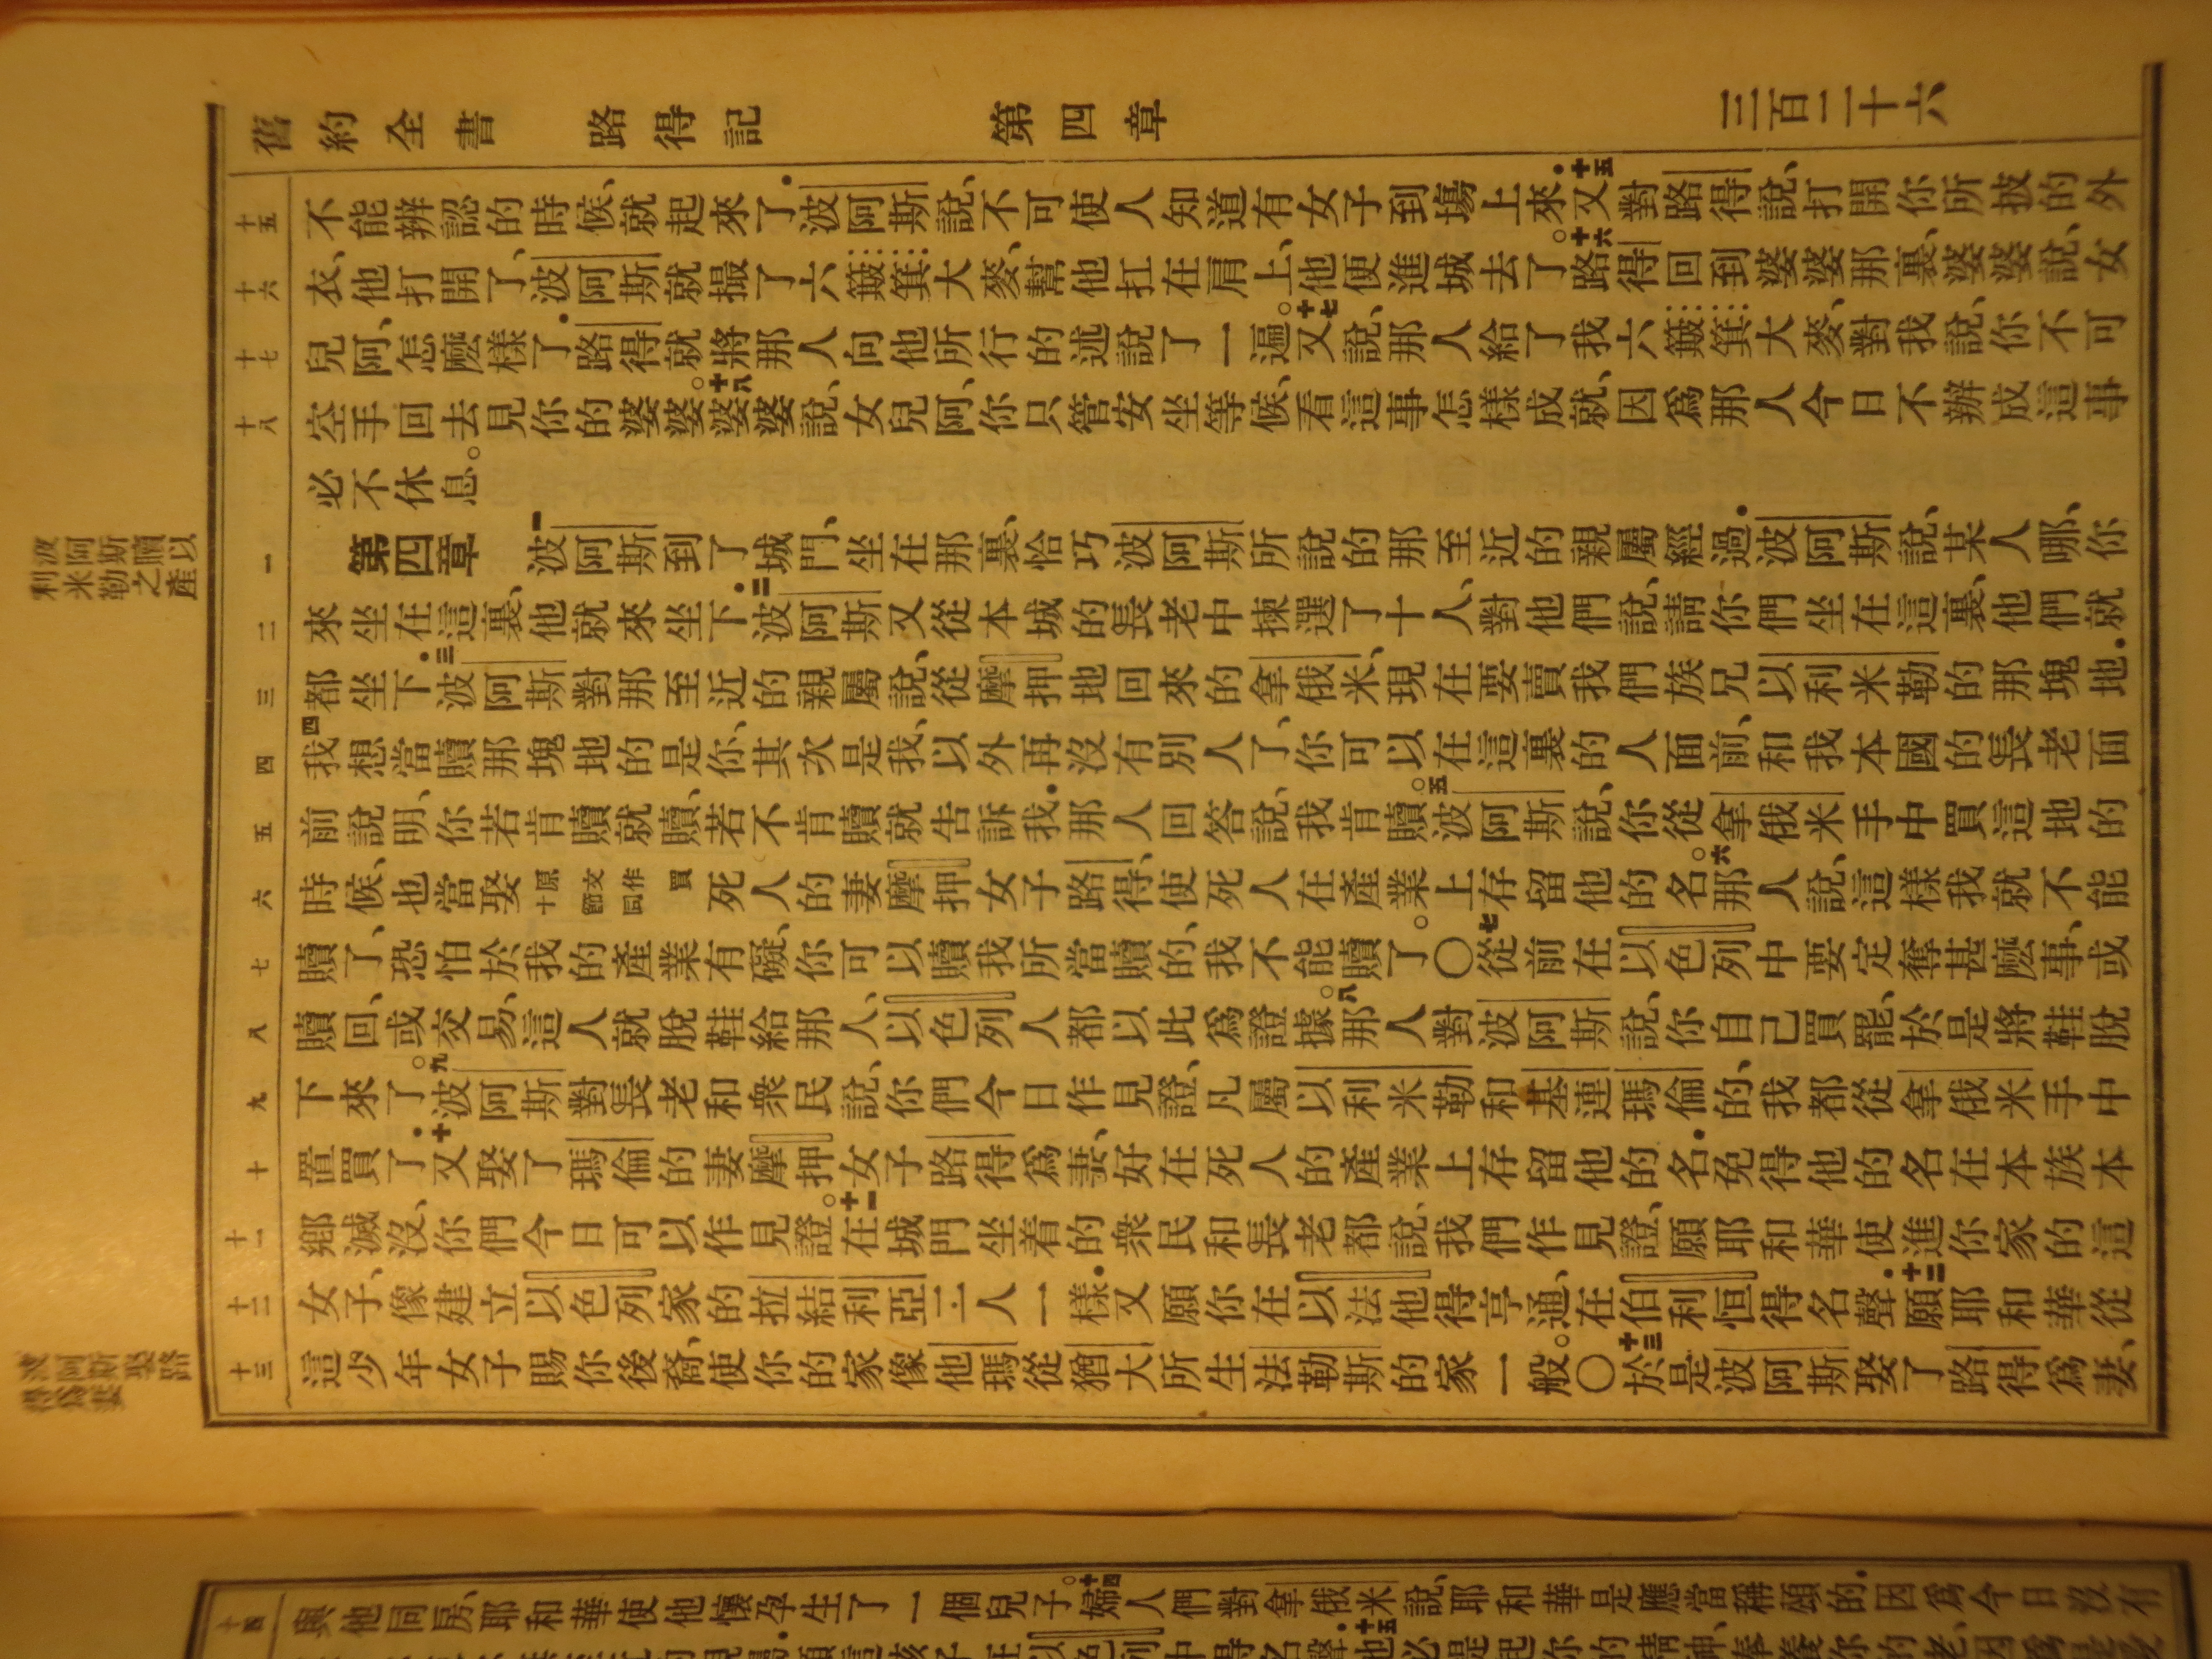 舊約全書 路得記 第四章 三百二十六
十五 不能辨認的時候、就起來了．波阿斯說、不可使人知道有女子到場上來．十五又對路得說、打開你所披的外
十六 衣、他打開了、波阿斯就撮了六簸箕大麥、幫他扛在肩上、他便進城去了。十六路得回到婆婆那裏、婆婆說、女
十七 兒阿、怎麼樣了．路得就將那人向他所行的述說了一遍。十七又說、那人給了我六簸箕大麥、對我說、你不可
十八 空手回去見你的婆婆。十八婆婆說、女兒阿、你只管安坐等候、看這事怎樣成就、因爲那人今日不辦成這事
必不休息。
一 第四章 一波阿斯到了城門、坐在那裏、恰巧波阿斯所說的那至近的親屬經過．波阿斯說、某人哪、你
二 來坐在這裏、他就來坐下．二波阿斯又從本城的長老中揀選了十人、對他們說、請你們坐在這裏、他們就
三 都坐下．三波阿斯對那至近的親屬說、從摩押地回來的拿俄米、現在要賣我們族兄以利米勒的那塊地．
四 四我想當贖那塊地的是你、其次是我、以外再沒有別人了、你可以在這裏的人面前、和我本國的長老面
五 前說明、你若肯贖就贖、若不肯贖就告訴我．那人回答說、我肯贖。五波阿斯說、你從拿俄米手中買這地的
六 時候、也當娶原文作買十節同死人的妻摩押女子路得、使死人在產業上存留他的名。六那人說、這樣我就不能
七 贖了、恐怕於我的產業有礙、你可以贖我所當贖的、我不能贖了。〇七從前在以色列中要定奪甚麼事、或
八 贖回、或交易、這人就脫鞋給那人、以色列人都以此爲證據。八那人對波阿斯說、你自己買罷、於是將鞋脫
九 下來了。九波阿斯對長老和衆民說、你們今日作見證、凡屬以利米勒和基連瑪倫的、我都從拿俄米手中
十 置買了．十又娶了瑪倫的妻摩押女子路得爲妻、好在死人的產業上存留他的名．免得他的名在本族本
十一 鄉滅沒、你們今日可以作見證。十一在城門坐着的衆民和長老都說、我們作見證、願耶和華使進你家的這
十二 女子、像建立以色列家的拉結利亞二人一樣．又願你在以法他得亨通、在伯利恒得名聲．十二願耶和華從
十三 這少年女子賜你後裔、使你的家像他瑪從猶大所生法勒斯的家一般。〇十三於是波阿斯娶了路得爲妻、
波阿斯贖以
利米勒之產
波阿斯娶路
得爲妻
十四 與他同房、耶和華使他懷孕生了一個兒子。十四婦人們對拿俄米說、耶和華是應當稱頌的．因爲今日沒有